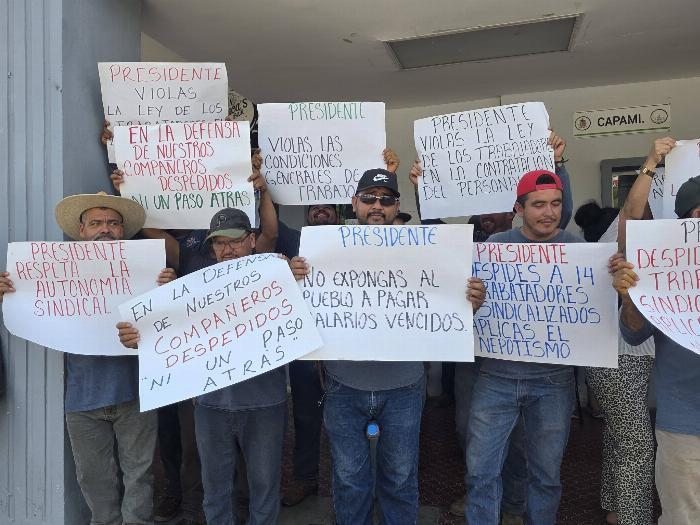 PRESIDENTE
VIOLAS
LA LEY DE LOS
EN LA DEFENSA
DE NUESTROS
COMPAÑEROS
DESPEDIDOS
¡NI UN PASO ATRAS
PRESIDENTE
VIOLAS LAS
CONDICIONES
GENERALES DE
TRABAJO
PRESIDENTE
VIOLAS LA LEY
DE LOS TRABAJADORES
EN LA CONTRATACION
DEL PERSONAL
CAPAMI.
PRESIDENTE
RESPETA LA
AUTONOMIA
SINDICAL
EN LA DEFENSA
DE NUESTROS
COMPAÑEROS
DESPEDIDOS
"NI UN PASO
ATRAS"
PRESIDENTE
NO EXPONGAS AL
PUEBLO A PAGAR
SALARIOS VENCIDOS.
PRESIDENTE
DESPIDES A 14
TRABATADORES
SINDICALIZADOS
APLICAS EL
NEPOTISMO
P
DESPID
TRA
SINDIC